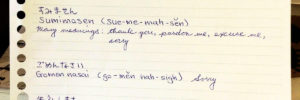 すみません
Sumimasen (sue-me-mah-sěn)
Many meanings: thank you, pardon me, excuse me,
sorry
ごめんなさい
Gomen nasai (go-měn nah-sigh) Sorry